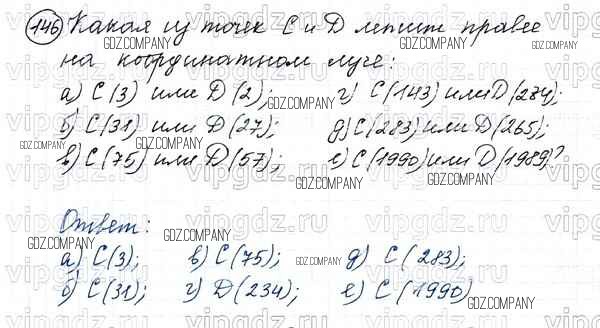 146 Какая из точек C и D лежит правее
на координатном луче:
а) C(3) или D(2); г) C(143) или D(284);
б) C(31) или D(27); д) C(283) или D(265);
в) C(75) или D(57); е) C(1990) или D(1989)?
Ответ:
а) C(3); в) C(75); д) C(283);
б) C(31); г) D(234); е) C(1990)
vipgdz.ru
GDZ.COMPANY